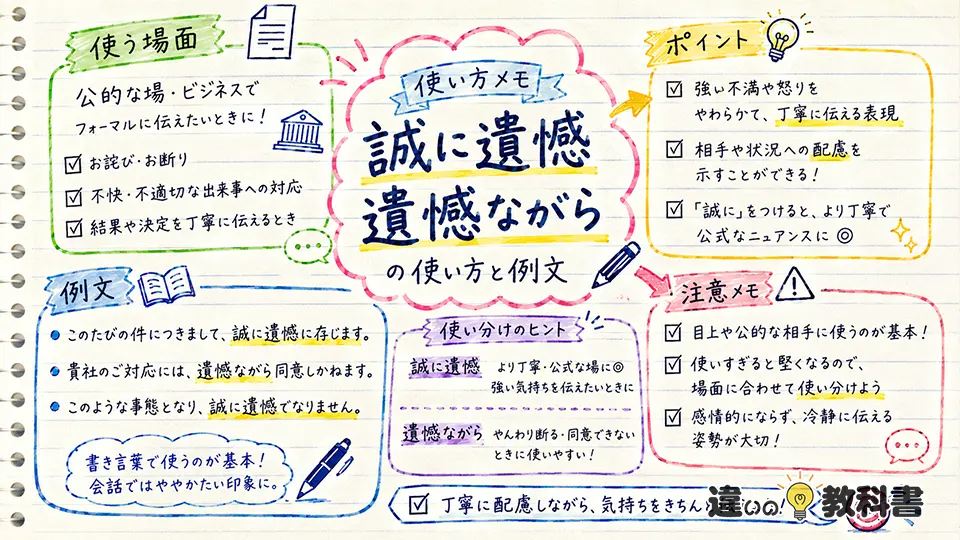 使い方メモ
誠に遺憾
遺憾ながら
の使い方と例文
使う場面
公的な場・ビジネスで
フォーマルに伝えたいときに！
お詫び・お断り
不快・不適切な出来事への対応
結果や決定を丁寧に伝えるとき
ポイント
強い不満や怒りを
やわらかて、丁寧に伝える表現
相手や状況への配慮を
示すことができる！
「誠に」をつけると、より丁寧で
公式なニュアンスに ◎
例文
このたびの件につきまして、誠に遺憾に存じます。
貴社のご対応には、遺憾ながら同意しかねます。
このような事態となり、誠に遺憾でなりません。
書き言葉で使うのが基本！
会話ではややかたい印象に。
使い分けのヒント
誠に遺憾
より丁寧・公式な場に◎
強い気持ちを伝えたいときに
遺憾ながら
やんわり断る・同意できない
ときに使いやすい！
注意メモ
目上や公的な相手に使うのが基本！
使いすぎると堅くなるので、
場面に合わせて使い分けよう
感情的にならず、冷静に伝える
姿勢が大切！
丁寧に配慮しながら、気持ちをきちん
違いの！教科書